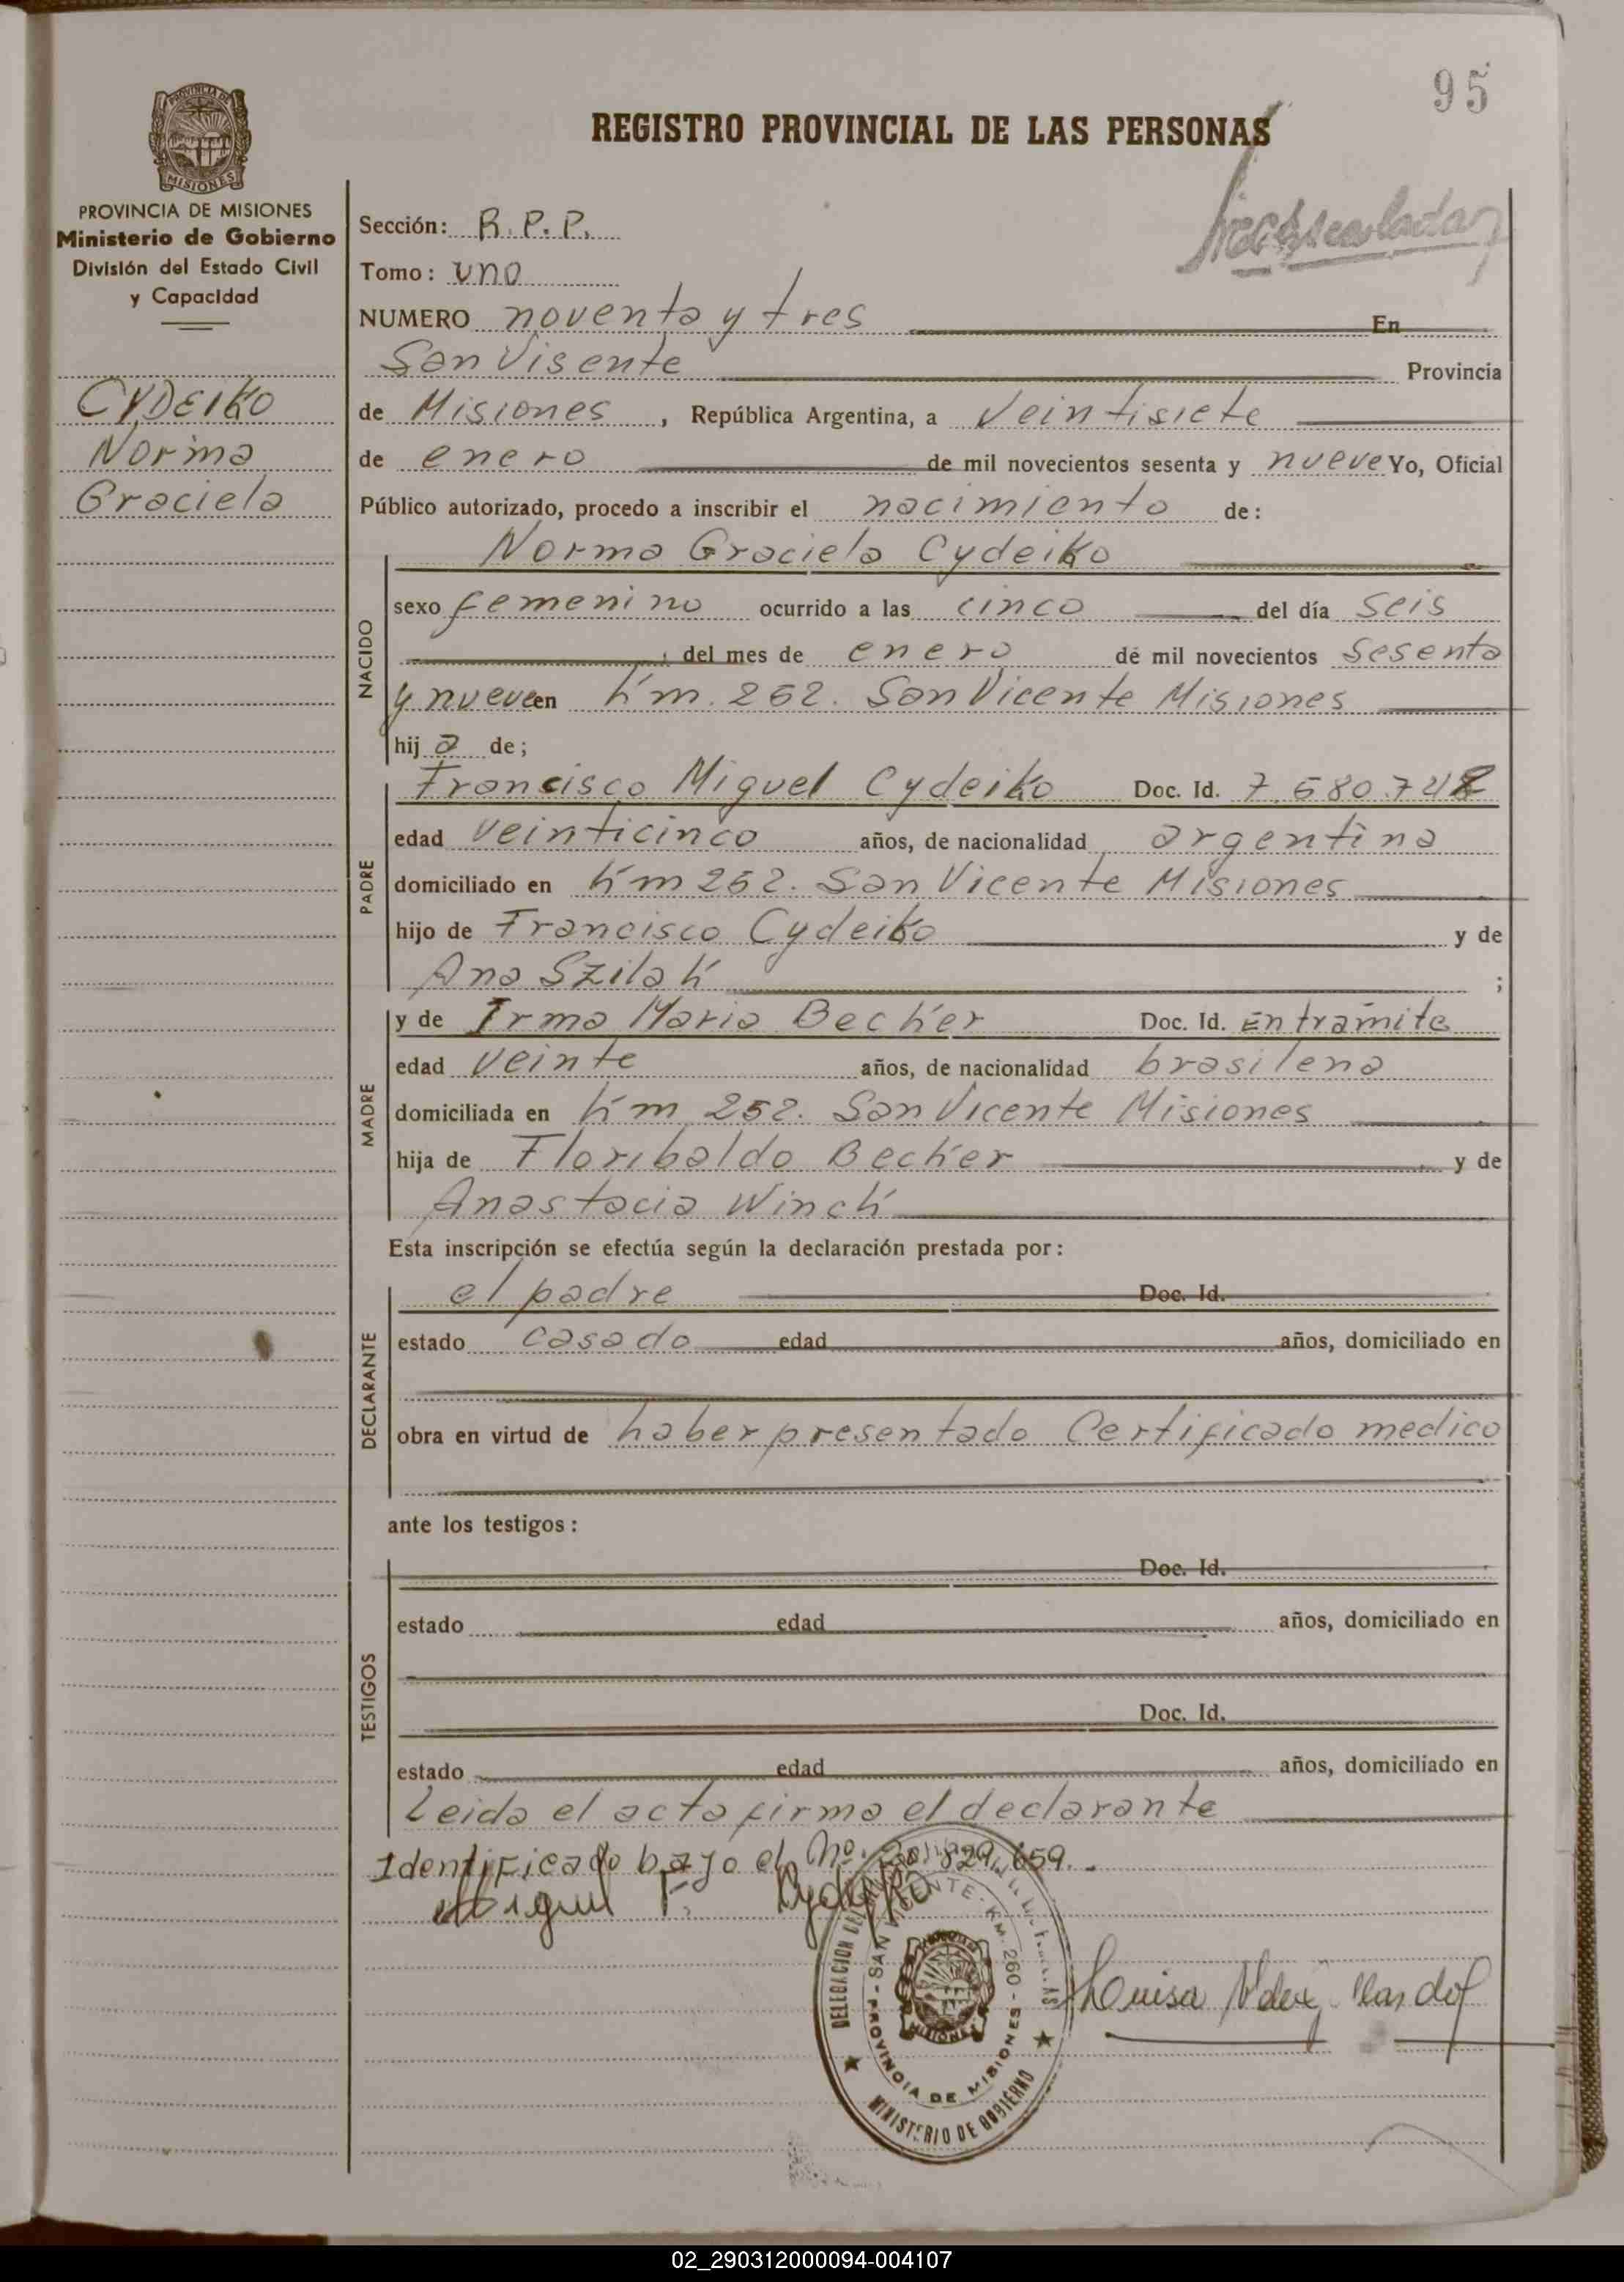 95
REGISTRO PROVINCIAL DE LAS PERSONAS
PROVINCIA DE
MISIONES
PROVINCIA DE MISIONES
Ministerio de Gobierno
División del Estado Civil
y Capacidad
CYDEIKO
Norma
Graciela
Sección: R. P. P.
Tomo: uno
NUMERO noventa y tres En
San Visente Provincia
de Misiones, República Argentina, a Veintisiete
de enero de mil novecientos sesenta y nueve Yo, Oficial
Público autorizado, procedo a inscribir el nacimiento de:
Norma Graciela Cydeiko
NACIDO
sexo femenino ocurrido a las cinco del día seis
del mes de enero de mil novecientos sesenta
y nueve en Km. 262. San Vicente Misiones
hija de;
PADRE
Francisco Miguel Cydeiko Doc. Id.
edad veinticinco años, de nacionalidad argentina
domiciliado en Km 262. San Vicente Misiones
hijo de Francisco Cydeiko y de
Ana Szilak ;
MADRE
y de Irma Maria Becker Doc. Id. En tramite
edad veinte años, de nacionalidad brasilena
domiciliada en Km 252. San Vicente Misiones
hija de Floribaldo Becker y de
Anastacia Winck
Esta inscripción se efectúa según la declaración prestada por:
DECLARANTE
el padre Doc. Id.
estado casado edad años, domiciliado en
obra en virtud de haber presentado Certificado medico
ante los testigos:
TESTIGOS
Doc. Id.
estado edad años, domiciliado en
Doc. Id.
estado edad años, domiciliado en
Leida el acta firma el declarante
Identificado bajo el No. 829.659.
Miguel F. Cydeiko
DELEGACION
SAN VICENTE - KM. 260 - PROVINCIA DE MISIONES
MISIONES
MINISTERIO DE GOBIERNO
Luisa
02_290312000094-004107